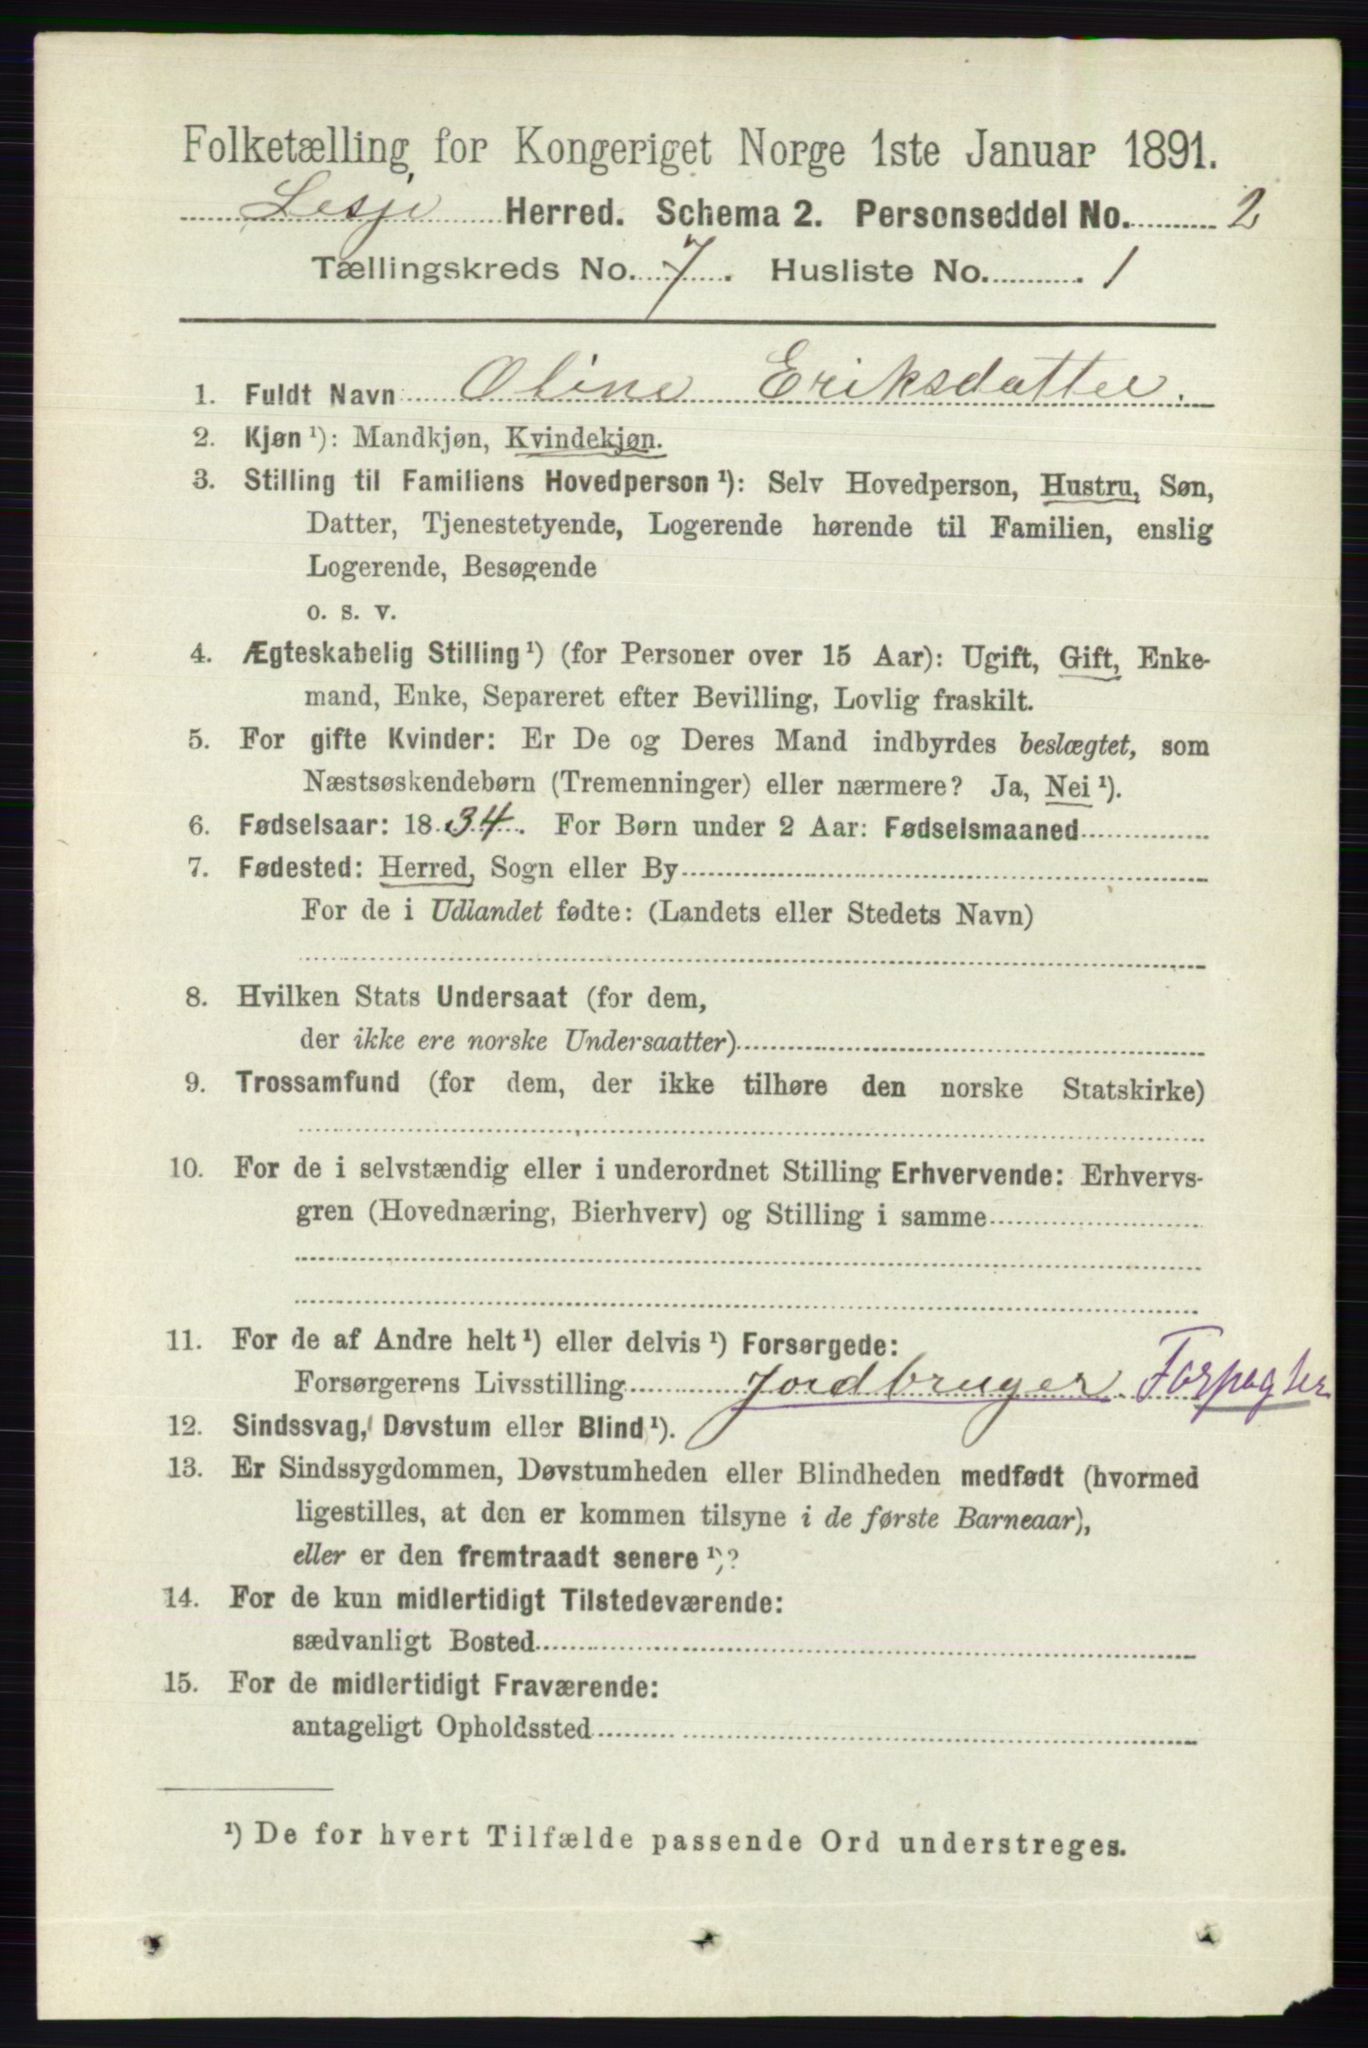 Folketælling for Kongeriget Norge 1ste Januar 1891.
Lesje Herred. Schema 2. Personseddel No. 2
Tællingskreds No. 7. Husliste No. 1
1. Fuldt Navn Oline Eriksdatter.
2. Kjøn ¹): Mandkjøn, Kvindekjøn.
3. Stilling til Familiens Hovedperson ¹): Selv Hovedperson, Hustru, Søn,
Datter, Tjenestetyende, Logerende hørende til Familien, enslig
Logerende, Besøgende
o. s. v.
4. Ægteskabelig Stilling ¹) (for Personer over 15 Aar): Ugift, Gift, Enke-
mand, Enke, Separeret efter Bevilling, Lovlig fraskilt.
5. For gifte Kvinder: Er De og Deres Mand indbyrdes beslægtet, som
Næstsøskendebørn (Tremenninger) eller nærmere? Ja, Nei ¹).
6. Fødselsaar: 1834. For Børn under 2 Aar: Fødselsmaaned
7. Fødested: Herred, Sogn eller By
For de i Udlandet fødte: (Landets eller Stedets Navn)
8. Hvilken Stats Undersaat (for dem,
der ikke ere norske Undersaatter)
9. Trossamfund (for dem, der ikke tilhøre den norske Statskirke)
10. For de i selvstændig eller i underordnet Stilling Erhvervende: Erhvervs-
gren (Hovednæring, Bierhverv) og Stilling i samme
11. For de af Andre helt ¹) eller delvis ¹) Forsørgede:
Forsørgerens Livsstilling Jordbruger. Forpagter
12. Sindssvag, Døvstum eller Blind ¹).
13. Er Sindssygdommen, Døvstumheden eller Blindheden medfødt (hvormed
ligestilles, at den er kommen tilsyne i de første Barneaar),
eller er den fremtraadt senere ¹)?
14. For de kun midlertidigt Tilstedeværende:
sædvanligt Bosted
15. For de midlertidigt Fraværende:
antageligt Opholdssted
¹) De for hvert Tilfælde passende Ord understreges.